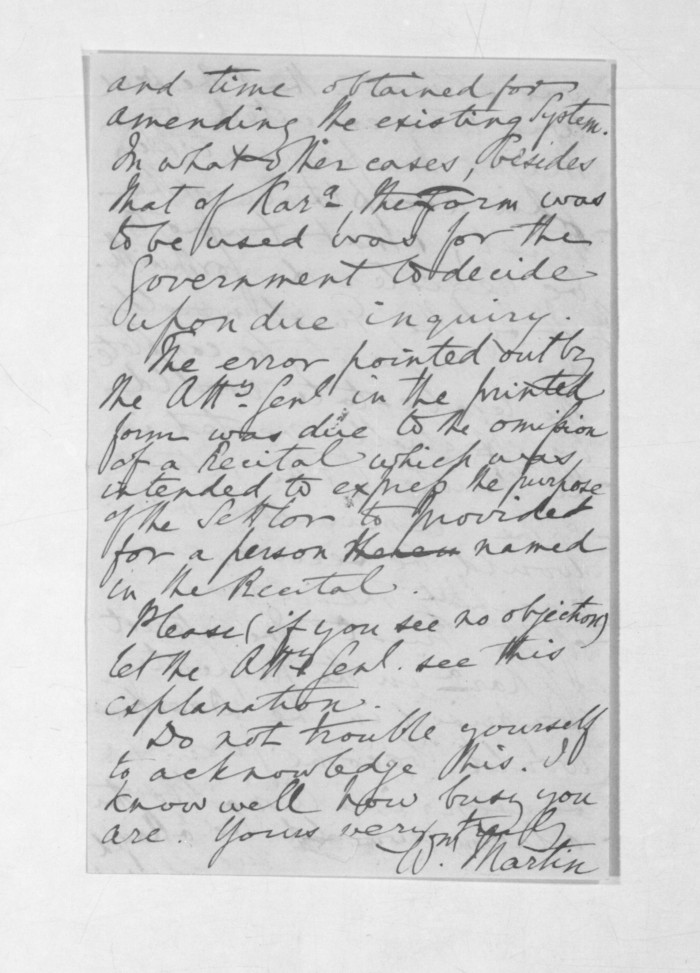 and time obtained for
amending the existing System.
In what other cases, besides
that of Karª the Form was
to be used was for the
Government to decide
upon due inquiry.
The error pointed out by
the Atty. Genl in the printed
form was due to the omission
of a Recital which was
intended to express the purpose
of the Settlor to provided
for a person therein named
in the Recital.
Please (if you see no objection)
let the Atty Genl. see this
explanation.
Do not trouble yourself
to acknowledge this. I
know well how busy you
are. Yours very truly
Wm. Martin